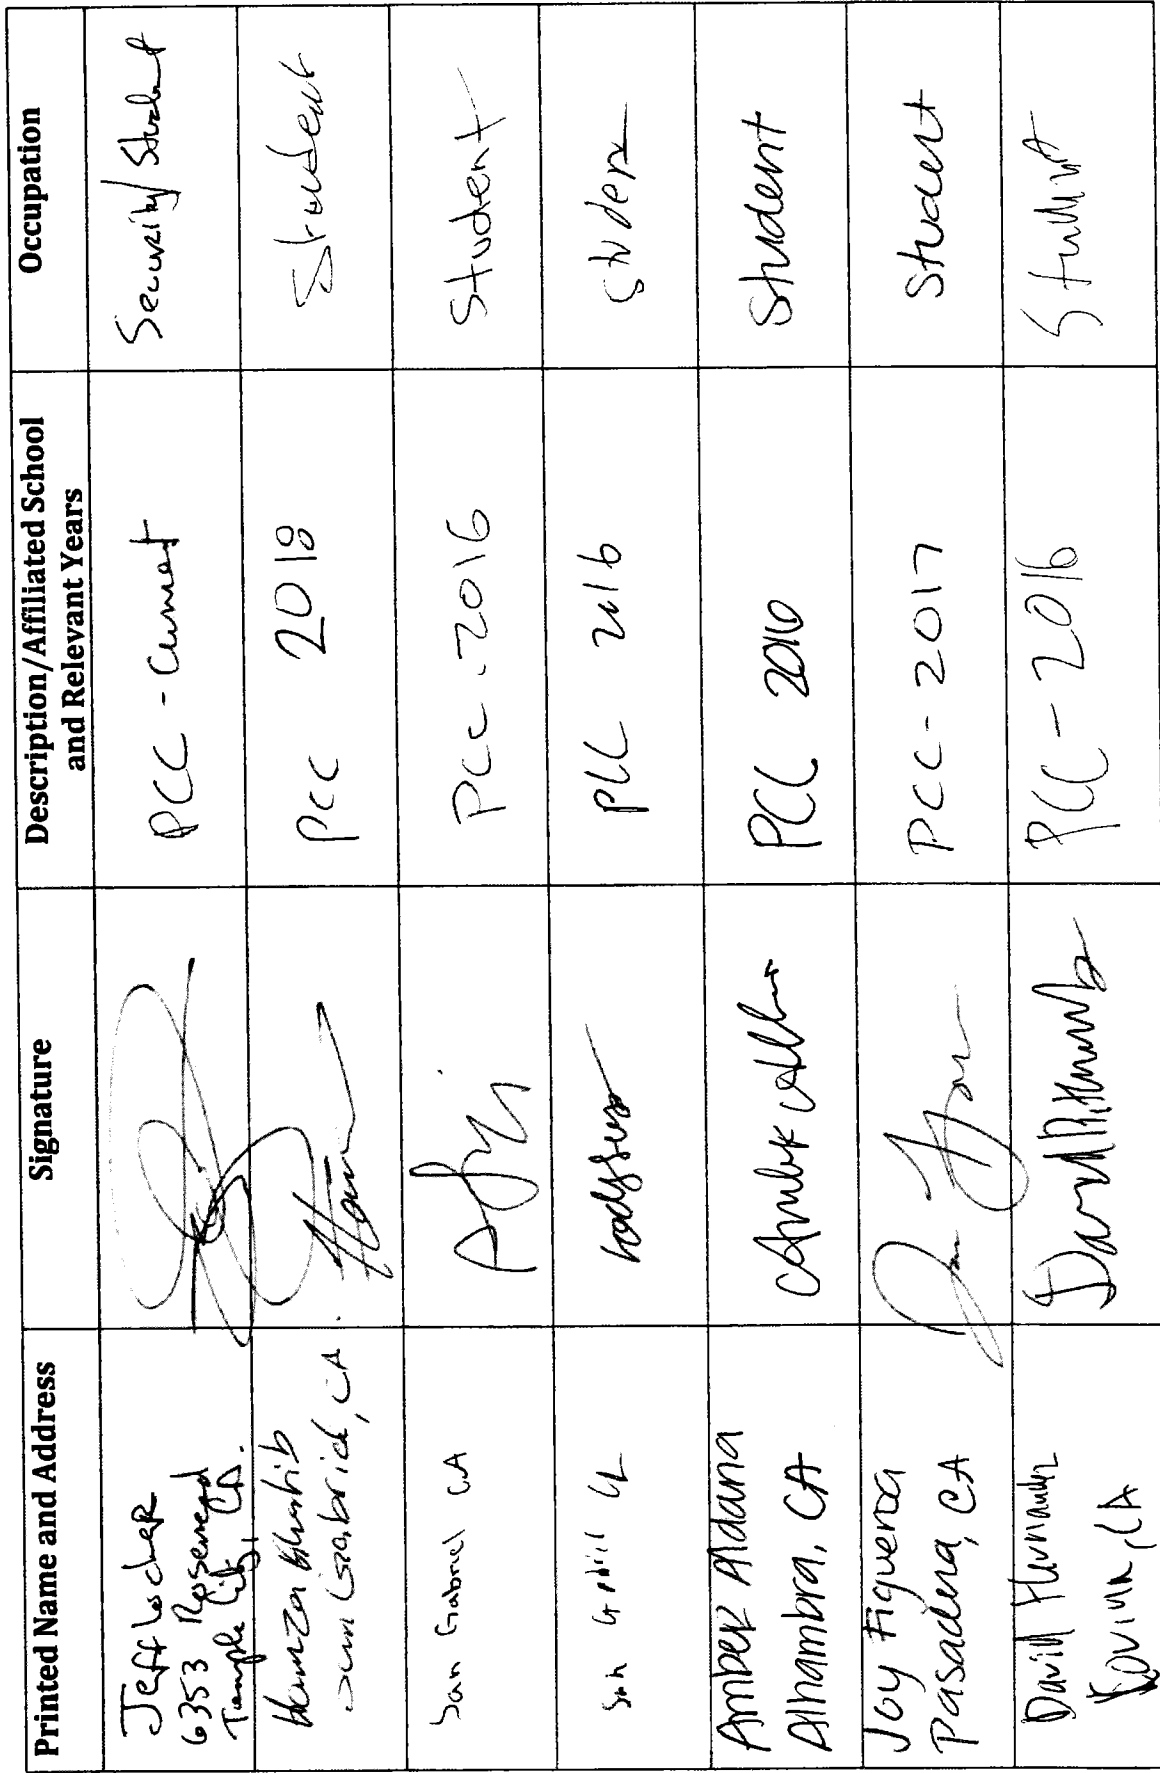 Printed Name and Address
Signature
Description/Affiliated School
and Relevant Years
Occupation
Jeff Locher
6353 Rosemead
Temple City, CA.
PCC - Current
Security/Student
Hamza Khatib
San Gabriel, CA
PCC 2018
Student
San Gabriel CA
PCC - 2016
Student
San Gabriel CA
PCC 2016
Student
Amber Aldana
Alhambra, CA
PCC 2016
Student
Joy Figueroa
Pasadena, CA
PCC - 2017
Student
David Hernandez
Covina, CA
PCC - 2016
Student